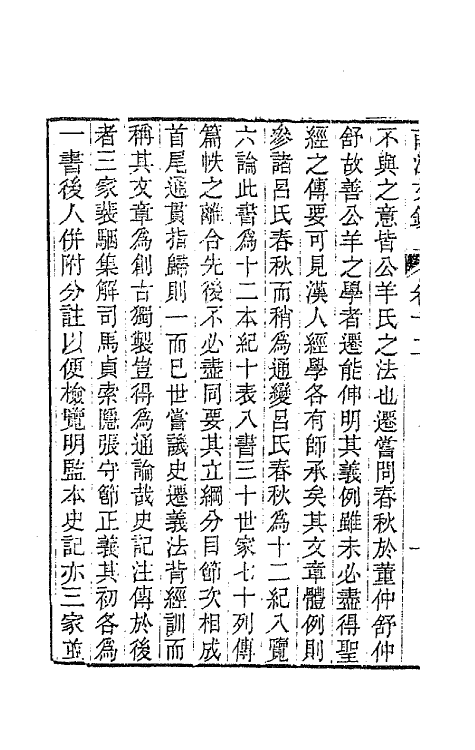 不與之意皆公羊氏之法也遷嘗問春秋於董仲舒仲
舒故善公羊之學者遷能伸明其義例雖未必盡得聖
經之傳要可見漢人經學各有師承矣其文章體例則
參諸呂氏春秋而稍爲通變呂氏春秋爲十二紀八覽
六論此書爲十二本紀十表八書三十世家七十列傳
篇帙之離合先後不必盡同要其立綱分目節次相成
首尾通貫指歸則一而已世嘗譏史遷義法背經訓而
稱其文章爲創古獨製豈得爲通論哉史記注傳於後
者三家裴駰集解司馬貞索隱張守節正義其初各爲
一書後人併附分註以便檢覽明監本史記亦三家並